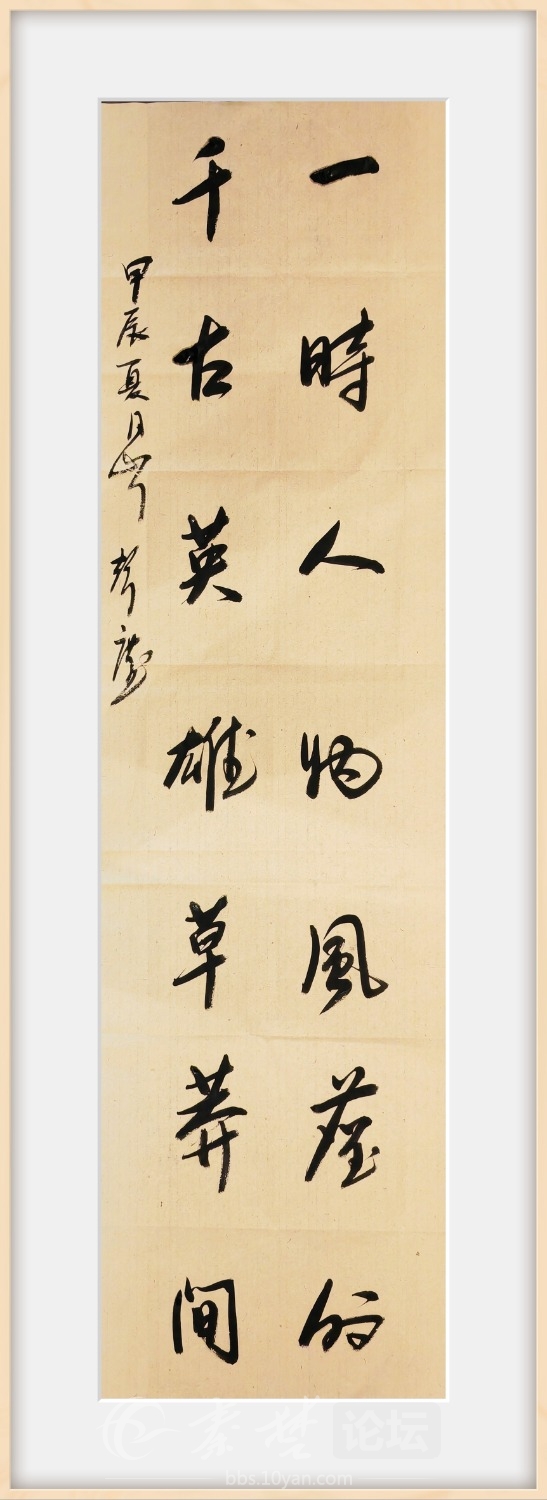 一時人物風塵外
千古英雄草莽間
甲辰夏日
秦楚论坛
bbs.10yan.com